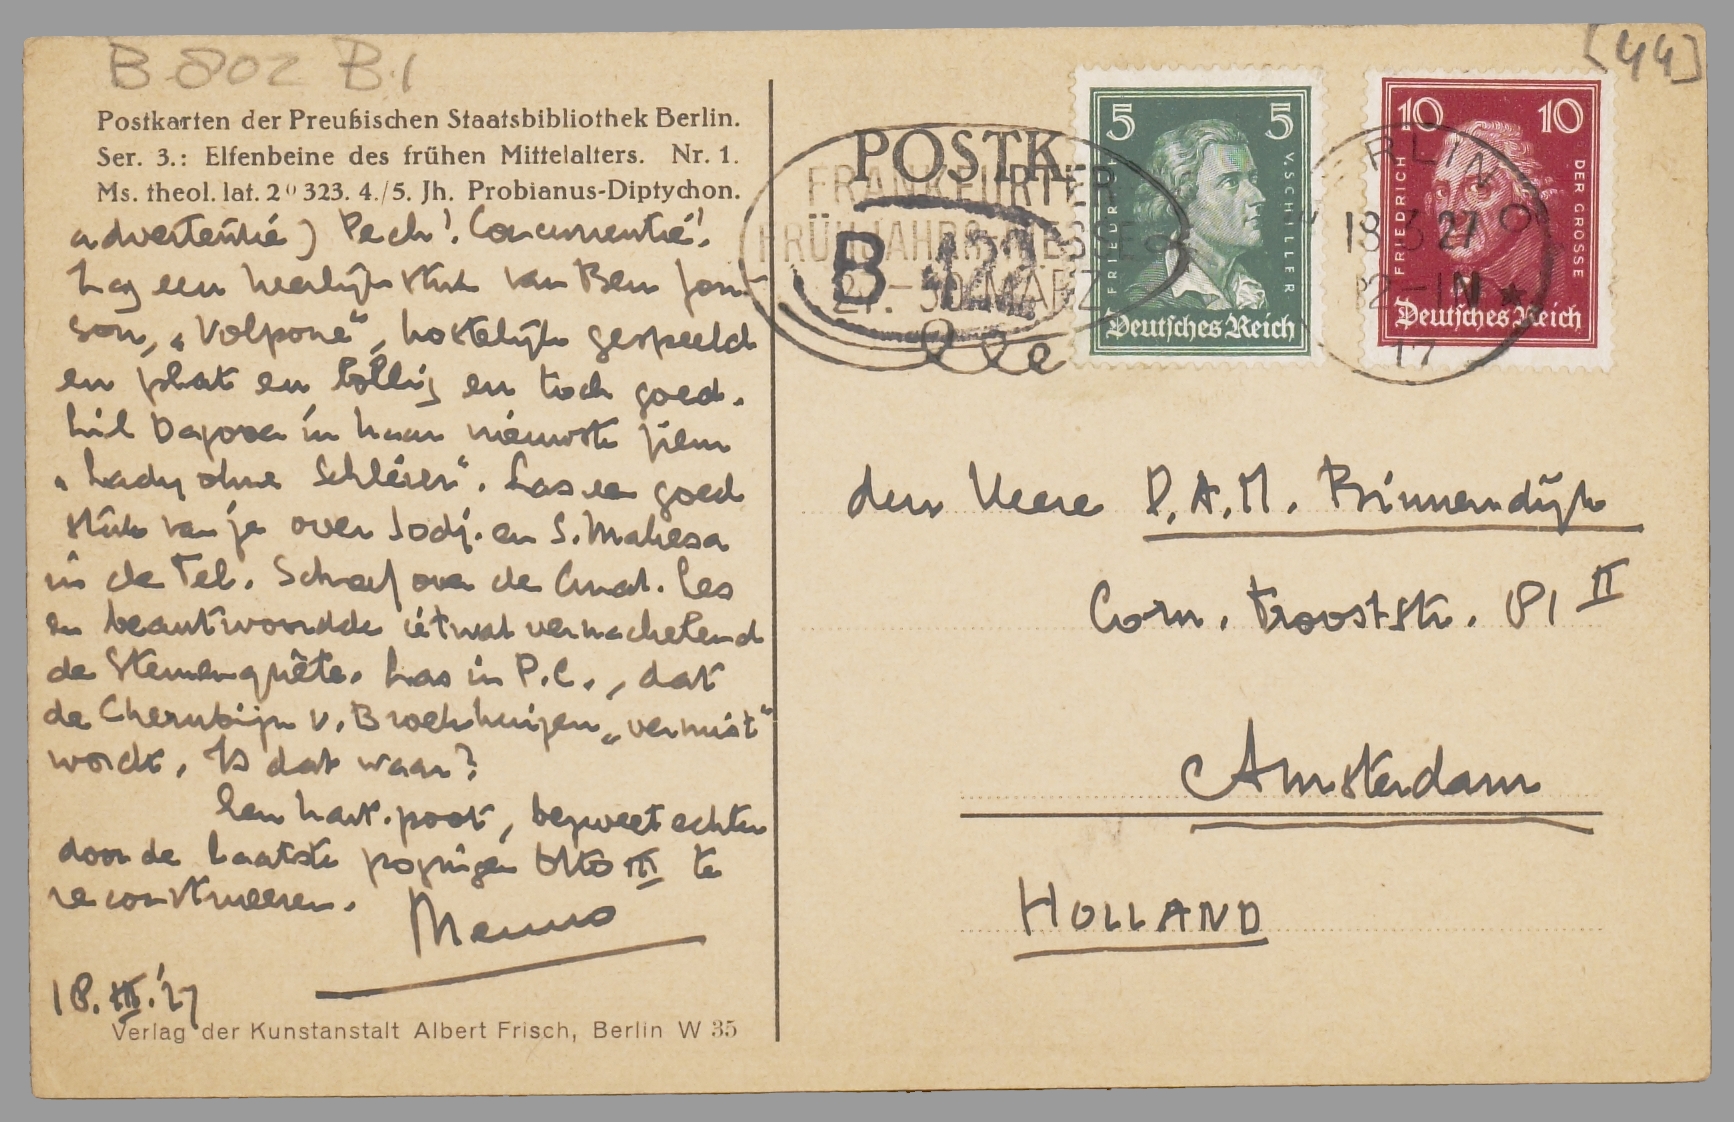 B 802 B.1
[44]
Postkarten der Preußischen Staatsbibliothek Berlin.
Ser. 3.: Elfenbeine des frühen Mittelalters. Nr. 1.
Ms. theol. lat. 2° 323. 4./5. Jh. Probianus-Diptychon.
advertentie) Pech! Concurrentie!
Zag een heerlijk stuk van Ben Jon-
son, „Volpone", kostelijk gespeeld
en plat en lollig en toch goed.
Lil Dagover in haar nieuwste film
„Lady ohne Schleier". Las een goed
stuk van je over Lodj. en S. Mahesa
in de Tel. Schreef over de
en beantwoordde ietwat vernachelend
de Stemenquête. Las in P.C., dat
de Cherubijn v. Broekhuizen „vermist"
wordt. Is dat waar?
Een hart. poot, bezweet echter
door de laatste pogingen Otto III te
reconstrueeren.
Menno
18.III.'27
Verlag der Kunstanstalt Albert Frisch, Berlin W 35
POSTK
FRANKFURTER
FRÜHJAHRSMESSE
27.-30.MÄRZ
B 422
5 5
FRIEDRICH
V. SCHILLER
Deutsches Reich
10 10
FRIEDRICH
DER GROSSE
Deutsches Reich
BERLIN
18.3.27
12-1N
17
den Heere D.A.M. Binnendijk
Corn. Trooststr. 81 II
Amsterdam
HOLLAND